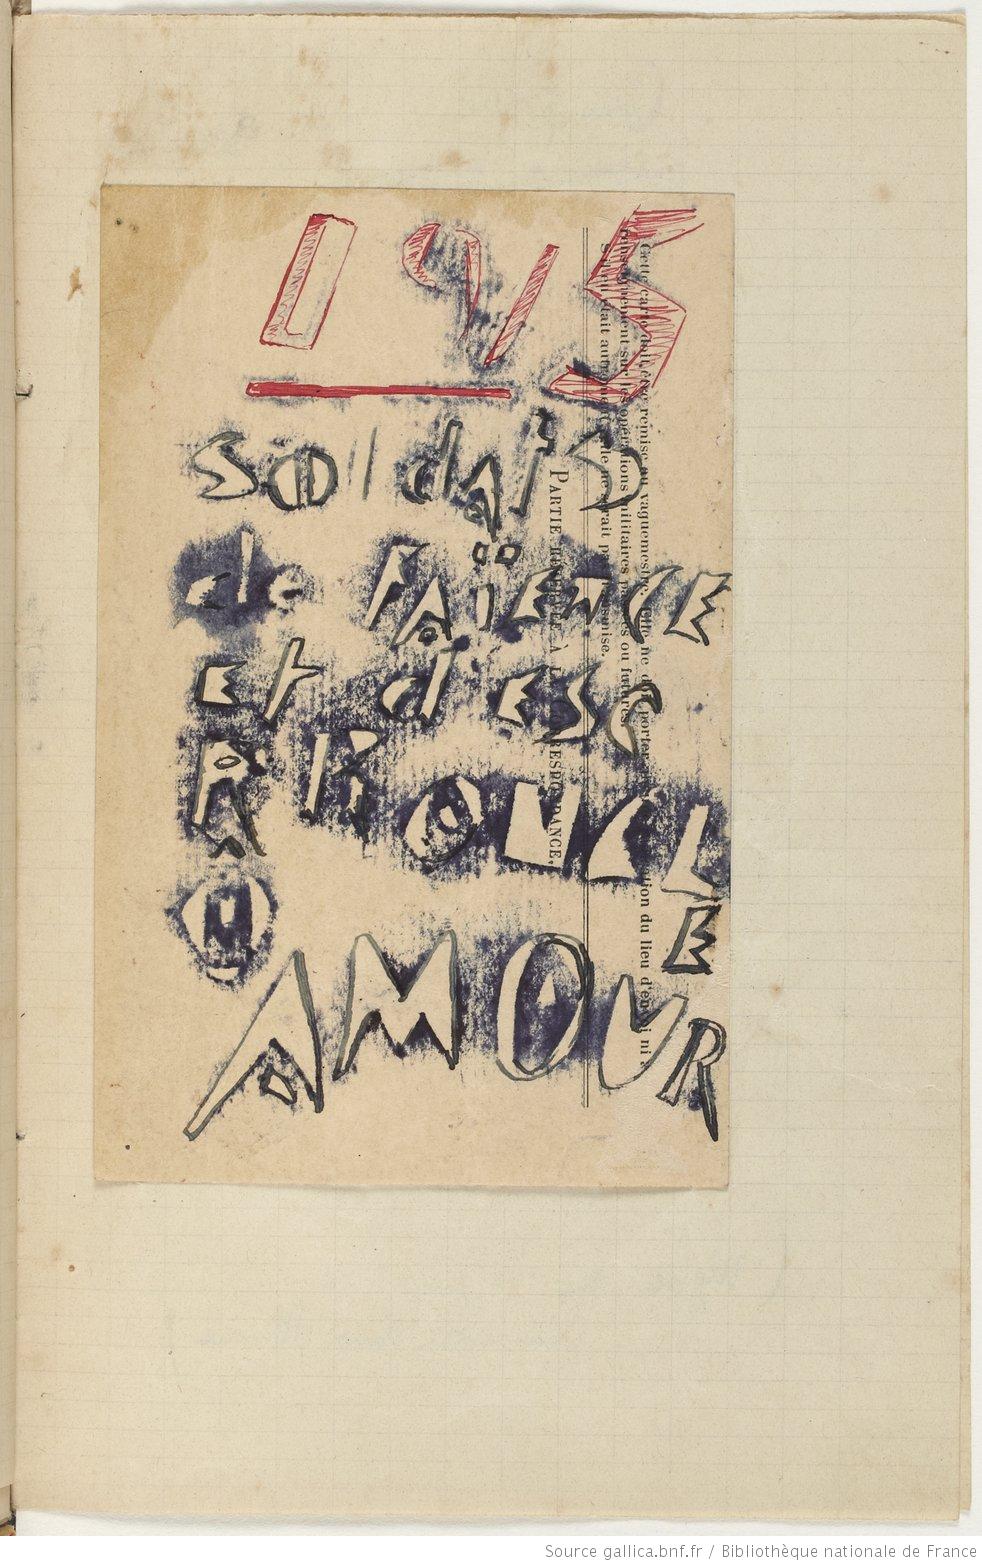 1915
Soldats
de FAÏENCE
Et d'ESC
ARBOUCLE
Ô
AMOUR
Cette carte doit être remise au vaguemestre. Elle ne doit porter
lion du lieu d'envoi ni
renseignement sur les opérations militaires passées ou futures.
S'il en était autrement, elle ne serait pas transmise.
PARTIE RÉSERVÉE À LA CORRESPONDANCE.
Source gallica.bnf.fr / Bibliothèque nationale de France